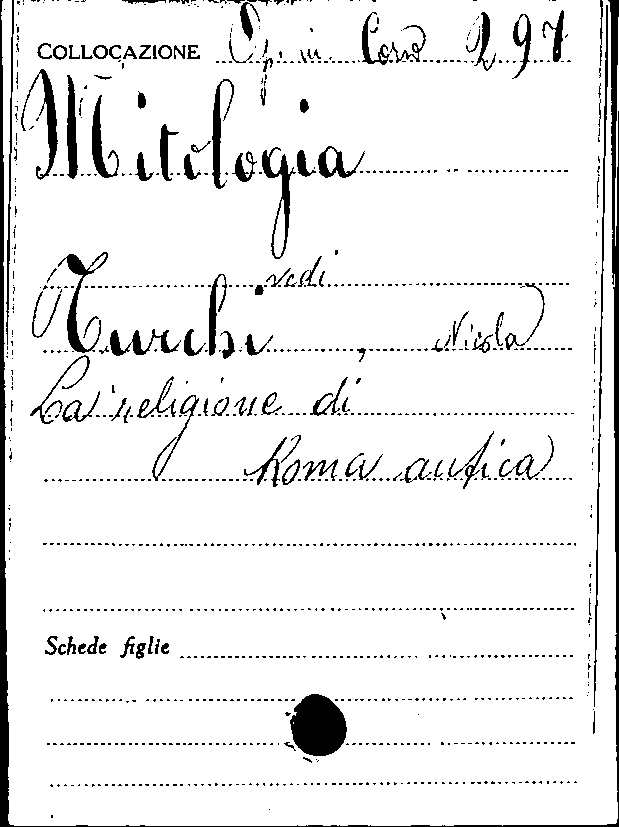 COLLOCAZIONE Op. in Corso 297
Mitologia
vedi
Turchi, Nicola
La religione di
Roma antica
Schede figlie